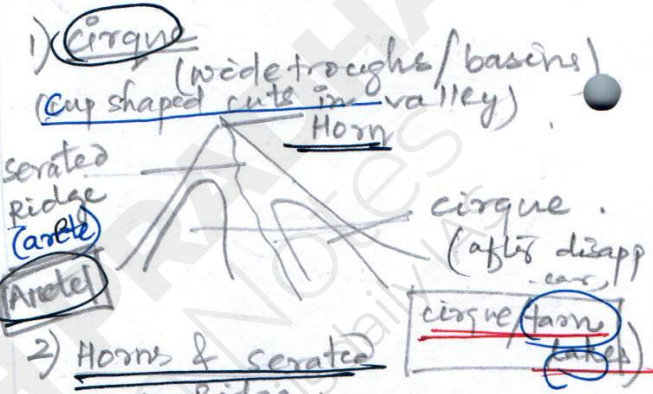 1) Cirque
(wide troughs/basins)
(cup shaped cuts in valley)
Horn
serated
Ridge
(arete)
Arete
cirque.
(after disapp
ear,
cirque/tarn
lakes)
2) Horns & serated
Ridge